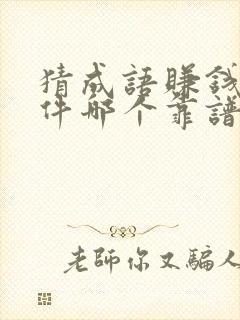 猜成語賺錢
件哪个靠譜
老師你又騙人